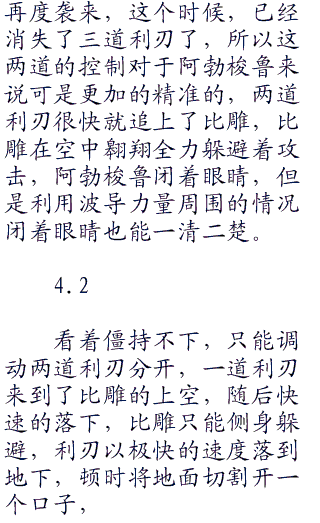 再度袭来，这个时候，已经
消失了三道利刃了，所以这
两道的控制对于阿勃梭鲁来
说可是更加的精准的，两道
利刃很快就追上了比雕，比
雕在空中翱翔全力躲避着攻
击，阿勃梭鲁闭着眼睛，但
是利用波导力量周围的情况
闭着眼睛也能一清二楚。
4.2
看着僵持不下，只能调
动两道利刃分开，一道利刃
来到了比雕的上空，随后快
速的落下，比雕只能侧身躲
避，利刃以极快的速度落到
地下，顿时将地面切割开一
个口子，